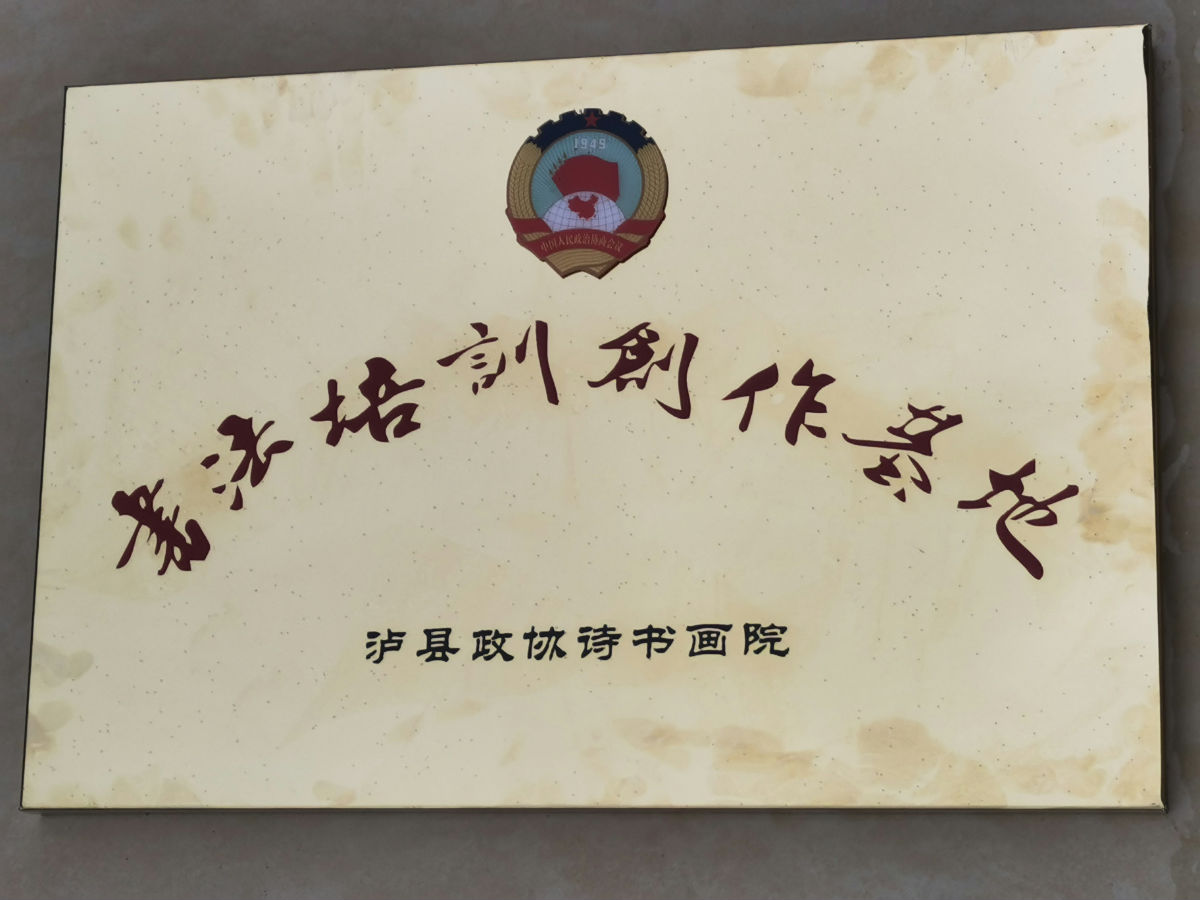 1949
中国人民政治协商会议
書法培訓創作基地
泸县政协诗书画院